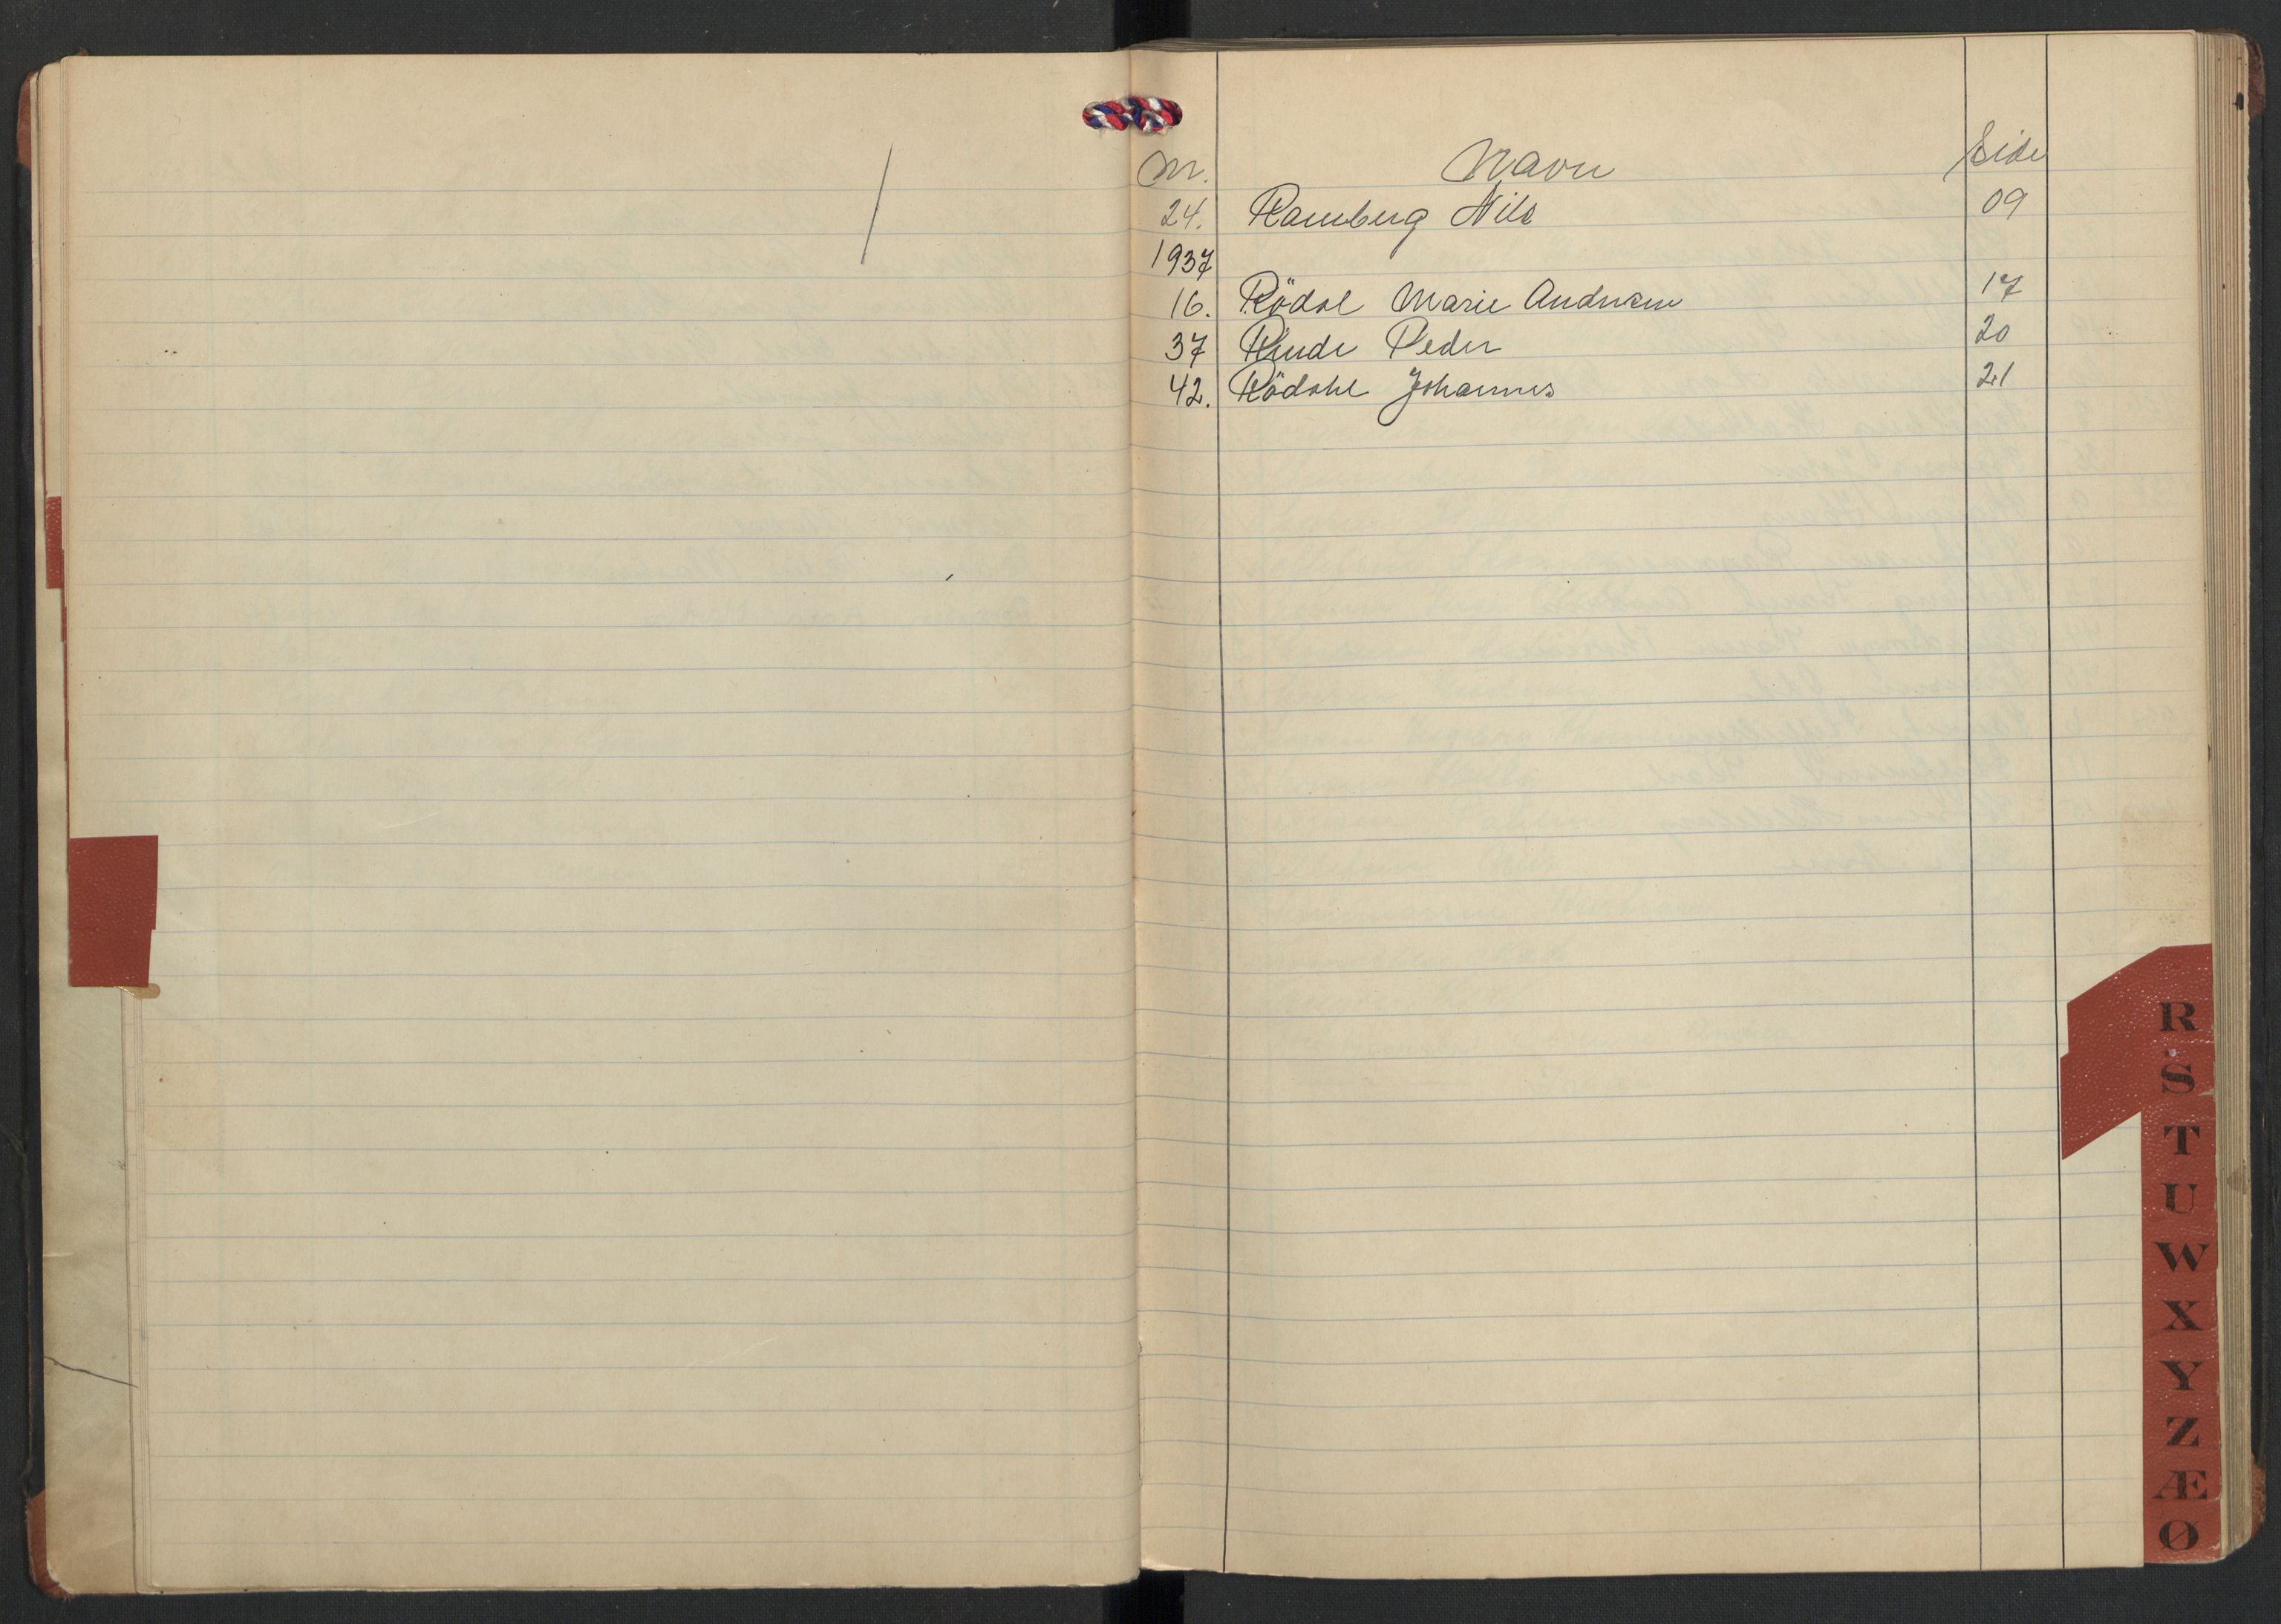 Nr. Navn Side
24. Ramberg Nils 09
1937
16. Rödsl Marie Andresen 17
37 Rinde Peder 20
42. Rödahl Johannes 21
R
S
T
U
W
X
Y
Z
Æ
Ø